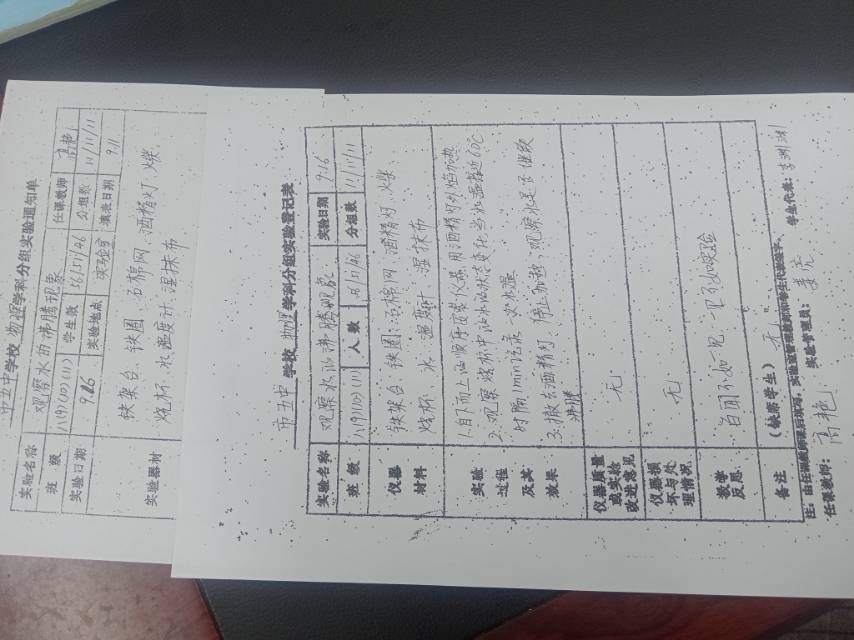 市五中学校物理学科分组实验通知单
实验名称 观察水的沸腾现象 任课教师 高艳
班级 八(9)(10)(11) 学生数 分组数 11/11/11
实验日期 9.16 实验地点 实验室 填表日期 9.11
实验器材 铁架台、铁圈、石棉网、酒精灯、火柴、
烧杯、水、温度计、湿抹布
市五中 学校 物理 学科分组实验登记表
实验名称 观察水的沸腾现象 实验日期 9.16
班级 八(9)(10)(11) 人数 分组数 11/11/11
仪器 铁架台、铁圈、石棉网、酒精灯、火柴、
材料 烧杯、水、温度计、湿抹布
实验
过程
及其
效果
1.自下而上的顺序安装仪器,用酒精灯外焰加热
2.观察烧杯中的水的状态变化,当水温接近
时隔1min记录一次水温
3.撤去酒精灯,停止加热,观察水是否继续
沸腾
仪器质量
或实验
改进意见
无
仪器损
坏与处
理情况
无
教学
反思
百闻不如一见,一见不如实验
备注 (缺席学生) 无
注:由任课教师课后填写,实验室管理教师和学生代表签字。
任课教师:高艳 实验管理员:姜亮 学生代表: